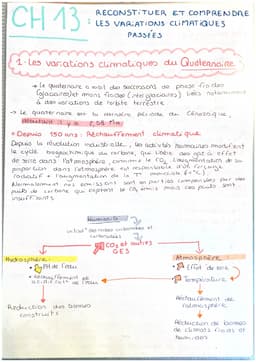 CH 13 : RECONSTITUER ET COMPRENDRE
LES VARIATIONS CLIMATIQUES
PASSÉES
1. Les variations climatiques du Quaternaire
→ le quaternaire a with des successions de phase froides
(glaciaires) et moins froides (interglaciaires) liées notamment
à des variations de l'orbite terrestre
→ Le quaternaire est la dernière période du Cénozoïque,
débutant il y a 2,58 Ma
• Depuis 150 ans : Réchauffement climatique
Depuis la révolution industrielle, les activités humaines modifient
le cycle biogéochimique du carbone, que libère des gaz à effet
de serre dans l'atmosphère, comme le CO2. L'augmentation de sa
proportion dans l'atmosphère est responsable d'un forçage
radiatif = l'augmentation de la T° mondiale (+°C)
Normalement nos émissions sont en parties compensées par des
puits de carbone qui captent le CO2 émis mais ces puits sont
insuffisants
Humanité
carbonées et
carbonatées
CO2 et autres
GES
Hydrosphère :
PH de l'eau
• réchauffement de
l'eau
Réduction des biomes
construits
Atmosphère :
• Effet de serre
• Température
Réchauffement de
l'atmosphère
Réduction de biomes
de climats froids et
humides